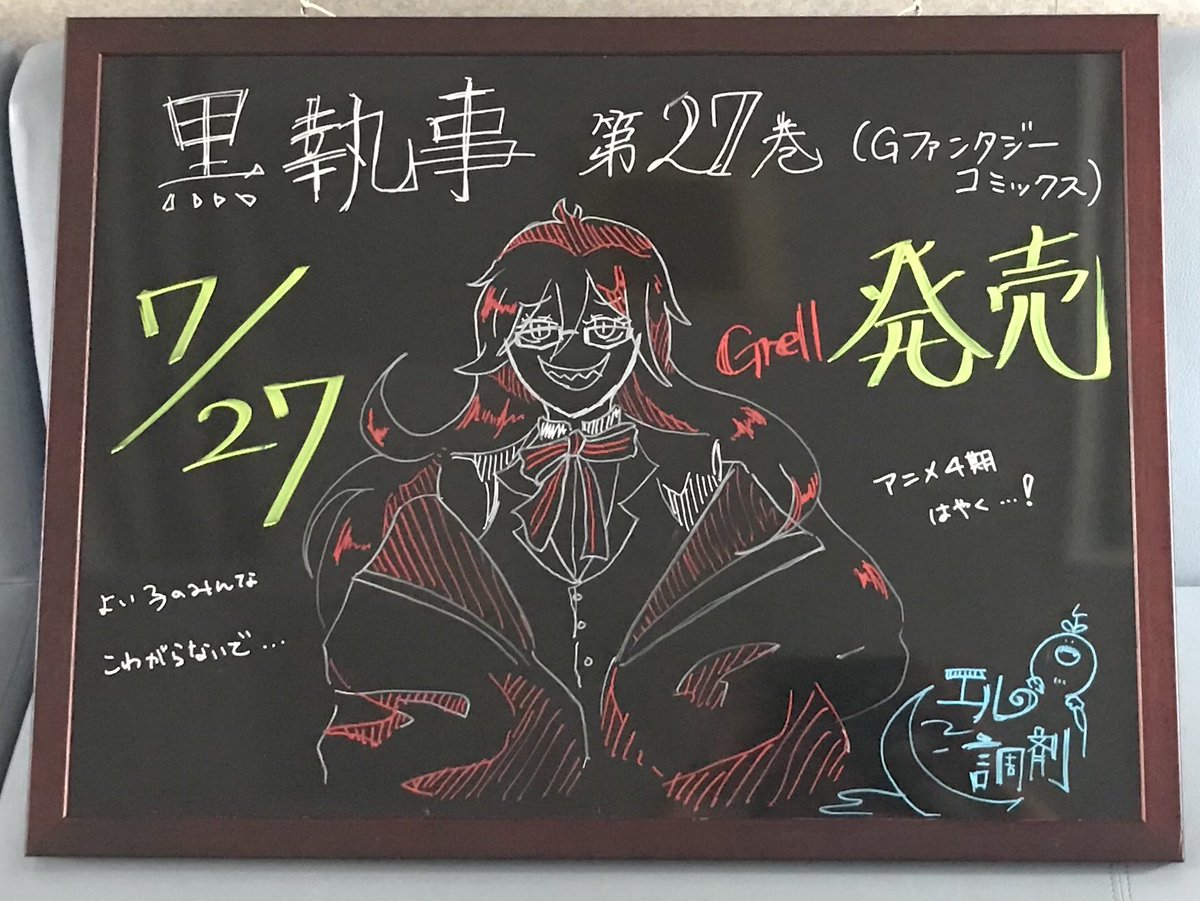 黒執事 第27巻 (Gファンタジー
コミックス)
7/27
Grell 発売
アニメ4期
はやく…!
よい子のみんな
こわがらないで…
エルの
調剤